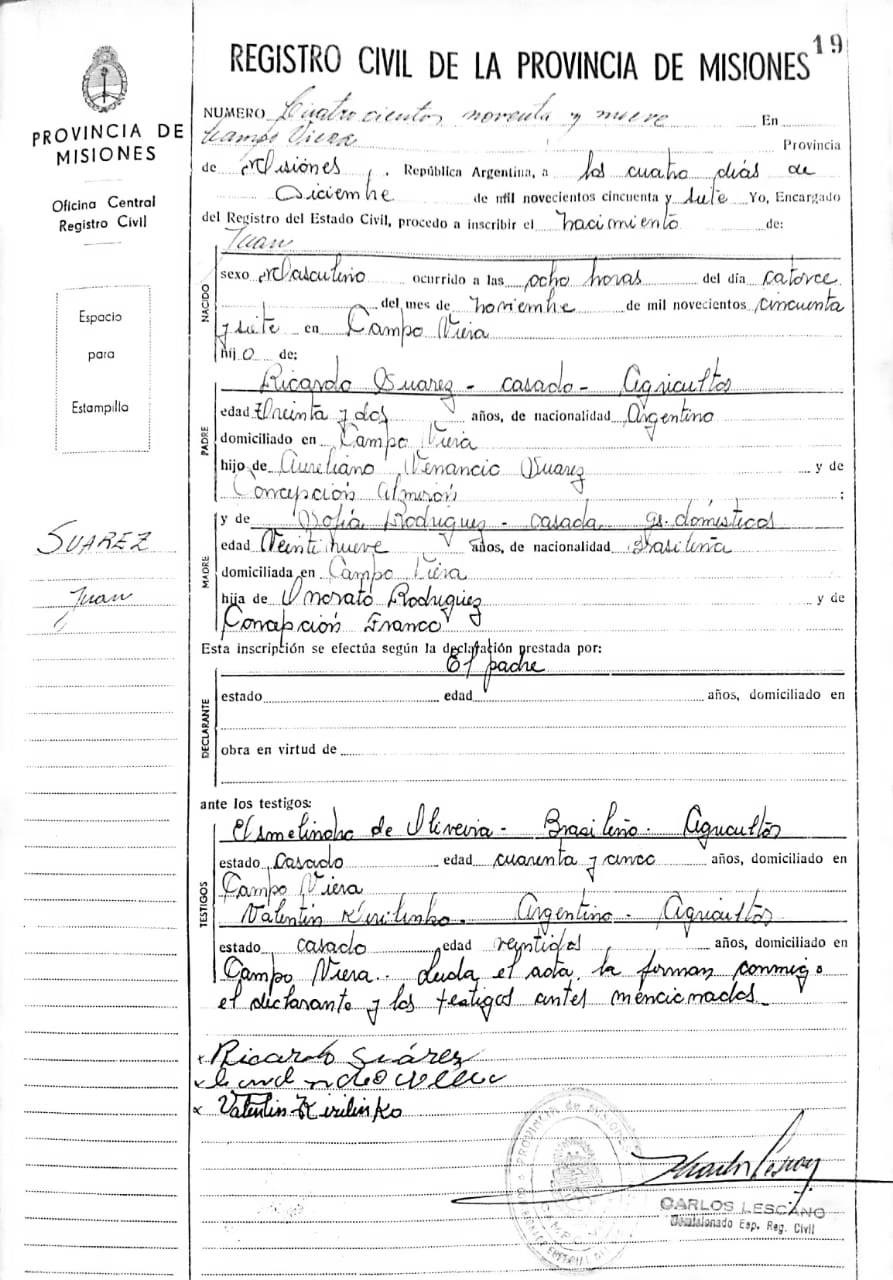 19
REGISTRO CIVIL DE LA PROVINCIA DE MISIONES
PROVINCIA DE
MISIONES
Oficina Central
Registro Civil
Espacio
para
Estampilla
SUAREZ
Juan
NUMERO Cuatrocientos noventa y nueve En
Campo Viera Provincia
de Misiones, República Argentina, a los cuatro días de
Diciembre de mil novecientos cincuenta y siete Yo, Encargado
del Registro del Estado Civil, procedo a inscribir el nacimiento de:
Juan
NACIDO
sexo Masculino ocurrido a las ocho horas del día catorce
del mes de noviembre de mil novecientos cincuenta
y siete en Campo Viera
hijo de:
PADRE
Ricardo Suarez - casado - Agricultor
edad Treinta y dos años, de nacionalidad Argentino
domiciliado en Campo Viera
hijo de Aureliano Venancio Suarez y de
Concepción Almirón ;
MADRE
y de Sofía Rodriguez - casada qs. domésticos
edad Veintinueve años, de nacionalidad Brasileña
domiciliada en Campo Viera
hija de Onorato Rodriguez y de
Concepción Franco
Esta inscripción se efectúa según la declaración prestada por:
El padre
DECLARANTE
estado edad años, domiciliado en
obra en virtud de
ante los testigos:
TESTIGOS
de Oliveira - Brasileño - Agricultor
estado casado edad cuarenta y cinco años, domiciliado en
Campo Viera
Valentin Kirilinko - Argentino - Agricultor
estado casado edad veintidos años, domiciliado en
Campo Viera. Leída el acta, la firman conmigo
el declarante y los testigos antes mencionados
x Ricardo Suárez
x
x Valentin Kirilinko
PROVINCIA DE MISIONES
CARLOS LESCANO
Comisionado Esp. Reg. Civil